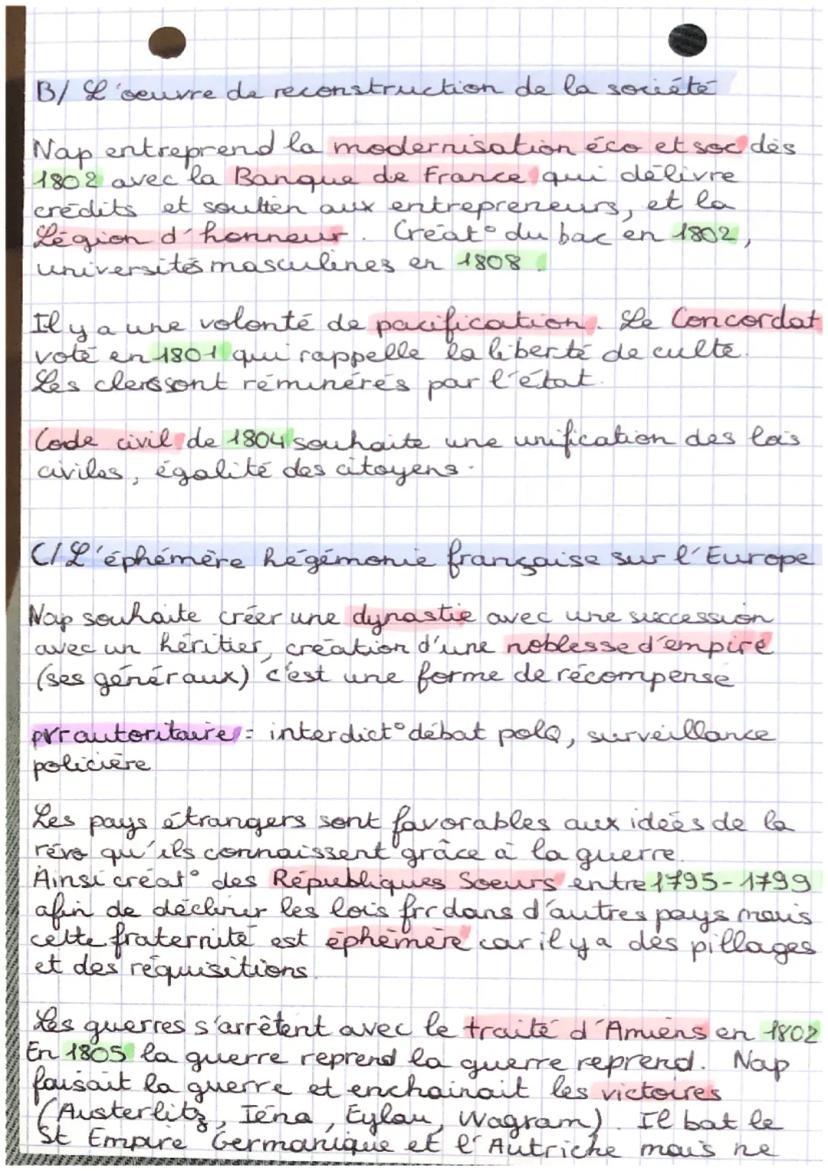 B/ L'oeuvre de reconstruction de la société
Nap entreprend la modernisation éco et soc dès
1802 avec la Banque de France qui délivre
crédits et soutien aux entrepreneurs, et la
Légion d'honneur. Créat° du bac en 1802,
universités masculines en 1808.
Il y a une volonté de pacification. Le Concordat
voté en 1801 qui rappelle la liberté de culte.
Les clercs sont réminérés par l'état.
Code civil de 1804 souhaite une unification des lois
civiles, égalité des citoyens.
C/ L'éphémère hégémonie française sur l'Europe
Nap souhaite créer une dynastie avec une succession
avec un héritier, création d'une noblesse d'empire
(ses généraux) c'est une forme de récompense
pvr autoritaire = interdict° débat polQ, surveillance
policière
Les pays étrangers sont favorables aux idées de la
révo qu'ils connaissent grâce à la guerre.
Ainsi créat° des Républiques Soeurs entre 1795-1799
afin de décliner les lois fr dans d'autres pays mais
cette fraternité est éphémère car il y a des pillages
et des réquisitions.
Les guerres s'arrêtent avec le traité d'Amiens en 1802
En 1805 la guerre reprend la guerre reprend. Nap
faisait la guerre et enchainait les victoires
(Austerlitz, Iéna, Eylau, Wagram). Il bat le
St Empire Germanique et l'Autriche mais ne